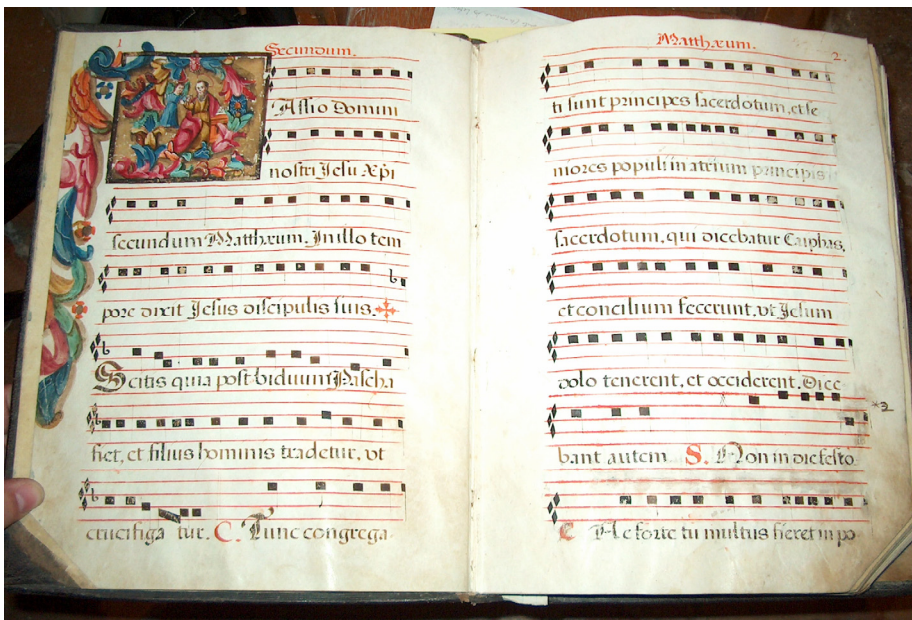 1
Secundum.
Assio Domini
nostri Jesu Xpi
secundum Matthæum. In illo tem
pore dixit Jesus discipulis suis.
Scitis quia post biduum Pascha
fiet, et filius hominis tradetur, vt
crucifiga tur. C. Tunc congrega
Matthæum.
2.
ti sunt principes sacerdotum, et se
niores populi in atrium principis
sacerdotum, qui dicebatur Caiphas,
et concilium fecerunt, vt Jesum
dolo tenerent, et occiderent. Dice
bant autem S. Non in die festo
C Ne forte tu multus fieret in po